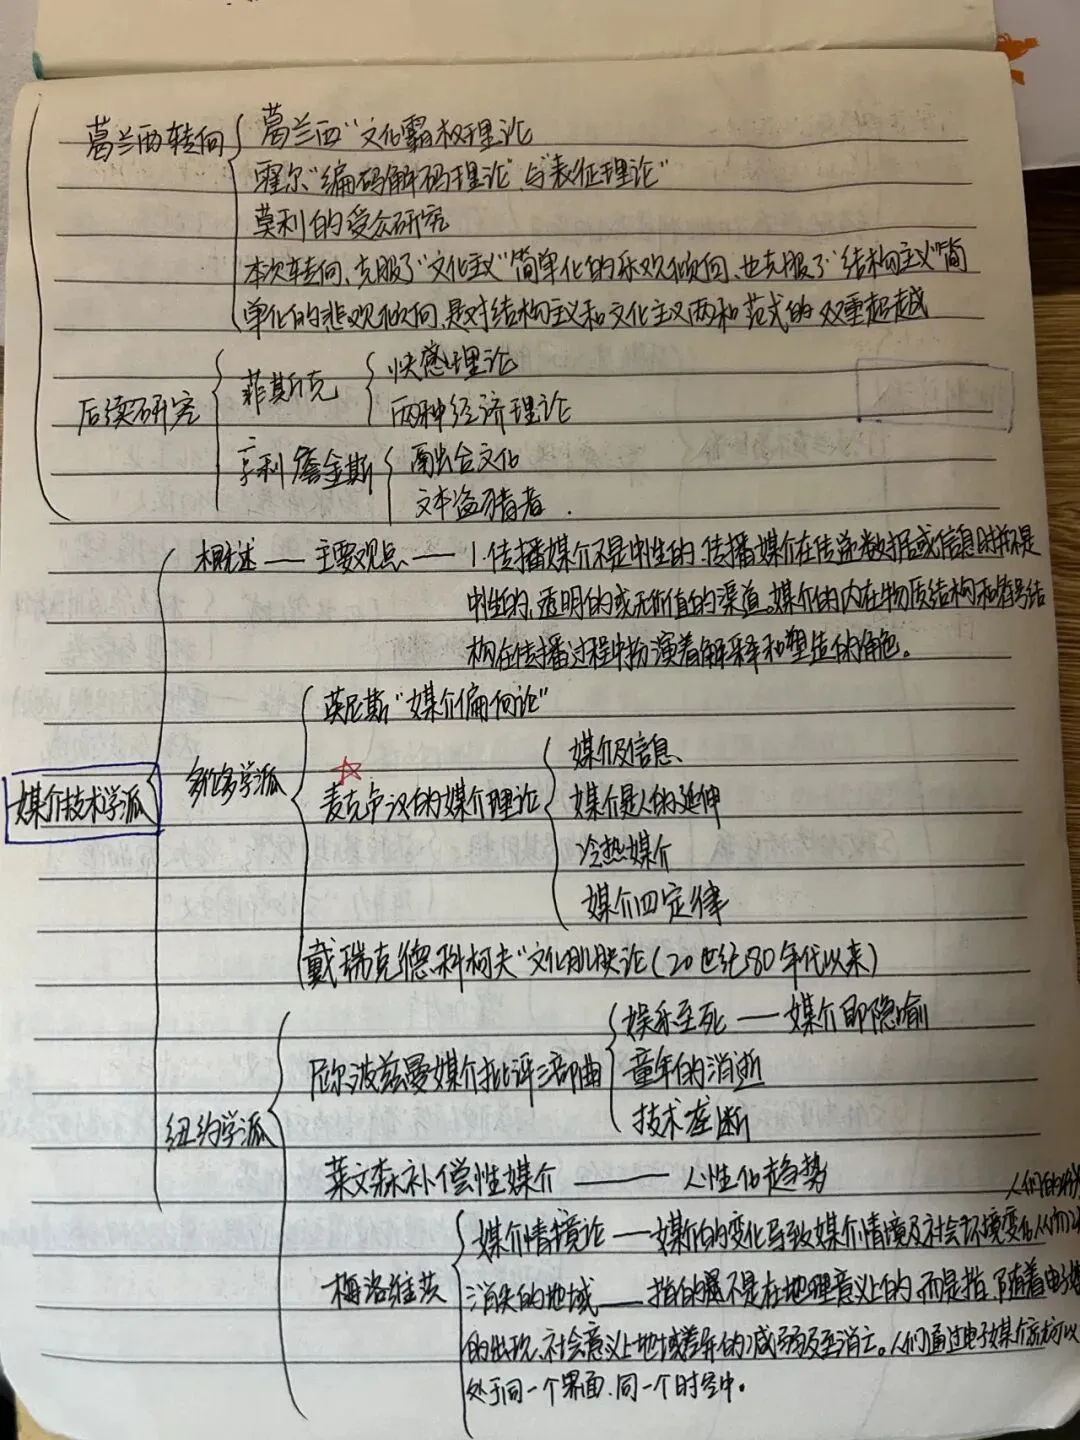 葛兰西转向
葛兰西"文化霸权理论
霍尔"编码解码理论"与"表征理论"
莫利的受众研究
本次转向、克服了"文化主义"简单化的乐观倾向、也克服了"结构主义"简
单化的悲观倾向、是对结构主义和文化主义两种范式的双重超越
后续研究
菲斯克
快感理论
两种经济理论
亨利詹金斯
融合文化
文本盗猎者.
概述——主要观点——1.传播媒介不是中性的.传播媒介在传递数据或信息时并不是
中性的、透明的或无价值的渠道。媒介的内在物质结构和符号结
构在传播过程中扮演着解释和塑造的角色。
媒介技术学派
多伦多学派
英尼斯"媒介偏向论"
麦克卢汉的媒介理论
媒介及信息、
媒介是人的延伸
冷热媒介
媒介四定律
戴瑞克德科柯夫"文化肌肤论(20世纪80年代以来)
纽约学派
尼尔波兹曼媒介批评三部曲
娱乐至死——媒介即隐喻
童年的消逝
技术垄断
莱文森补偿性媒介——人性化趋势
人们的
梅洛维茨
媒介情境论——媒介的变化导致媒介情境及社会环境变化从而
消失的地域——指的是不是在地理意义上的,而是指、随着电子
的出现、社会意义上地域差异的减弱及至消亡。人们通过电子媒介就可以
处于同一个界面、同一个时空中。